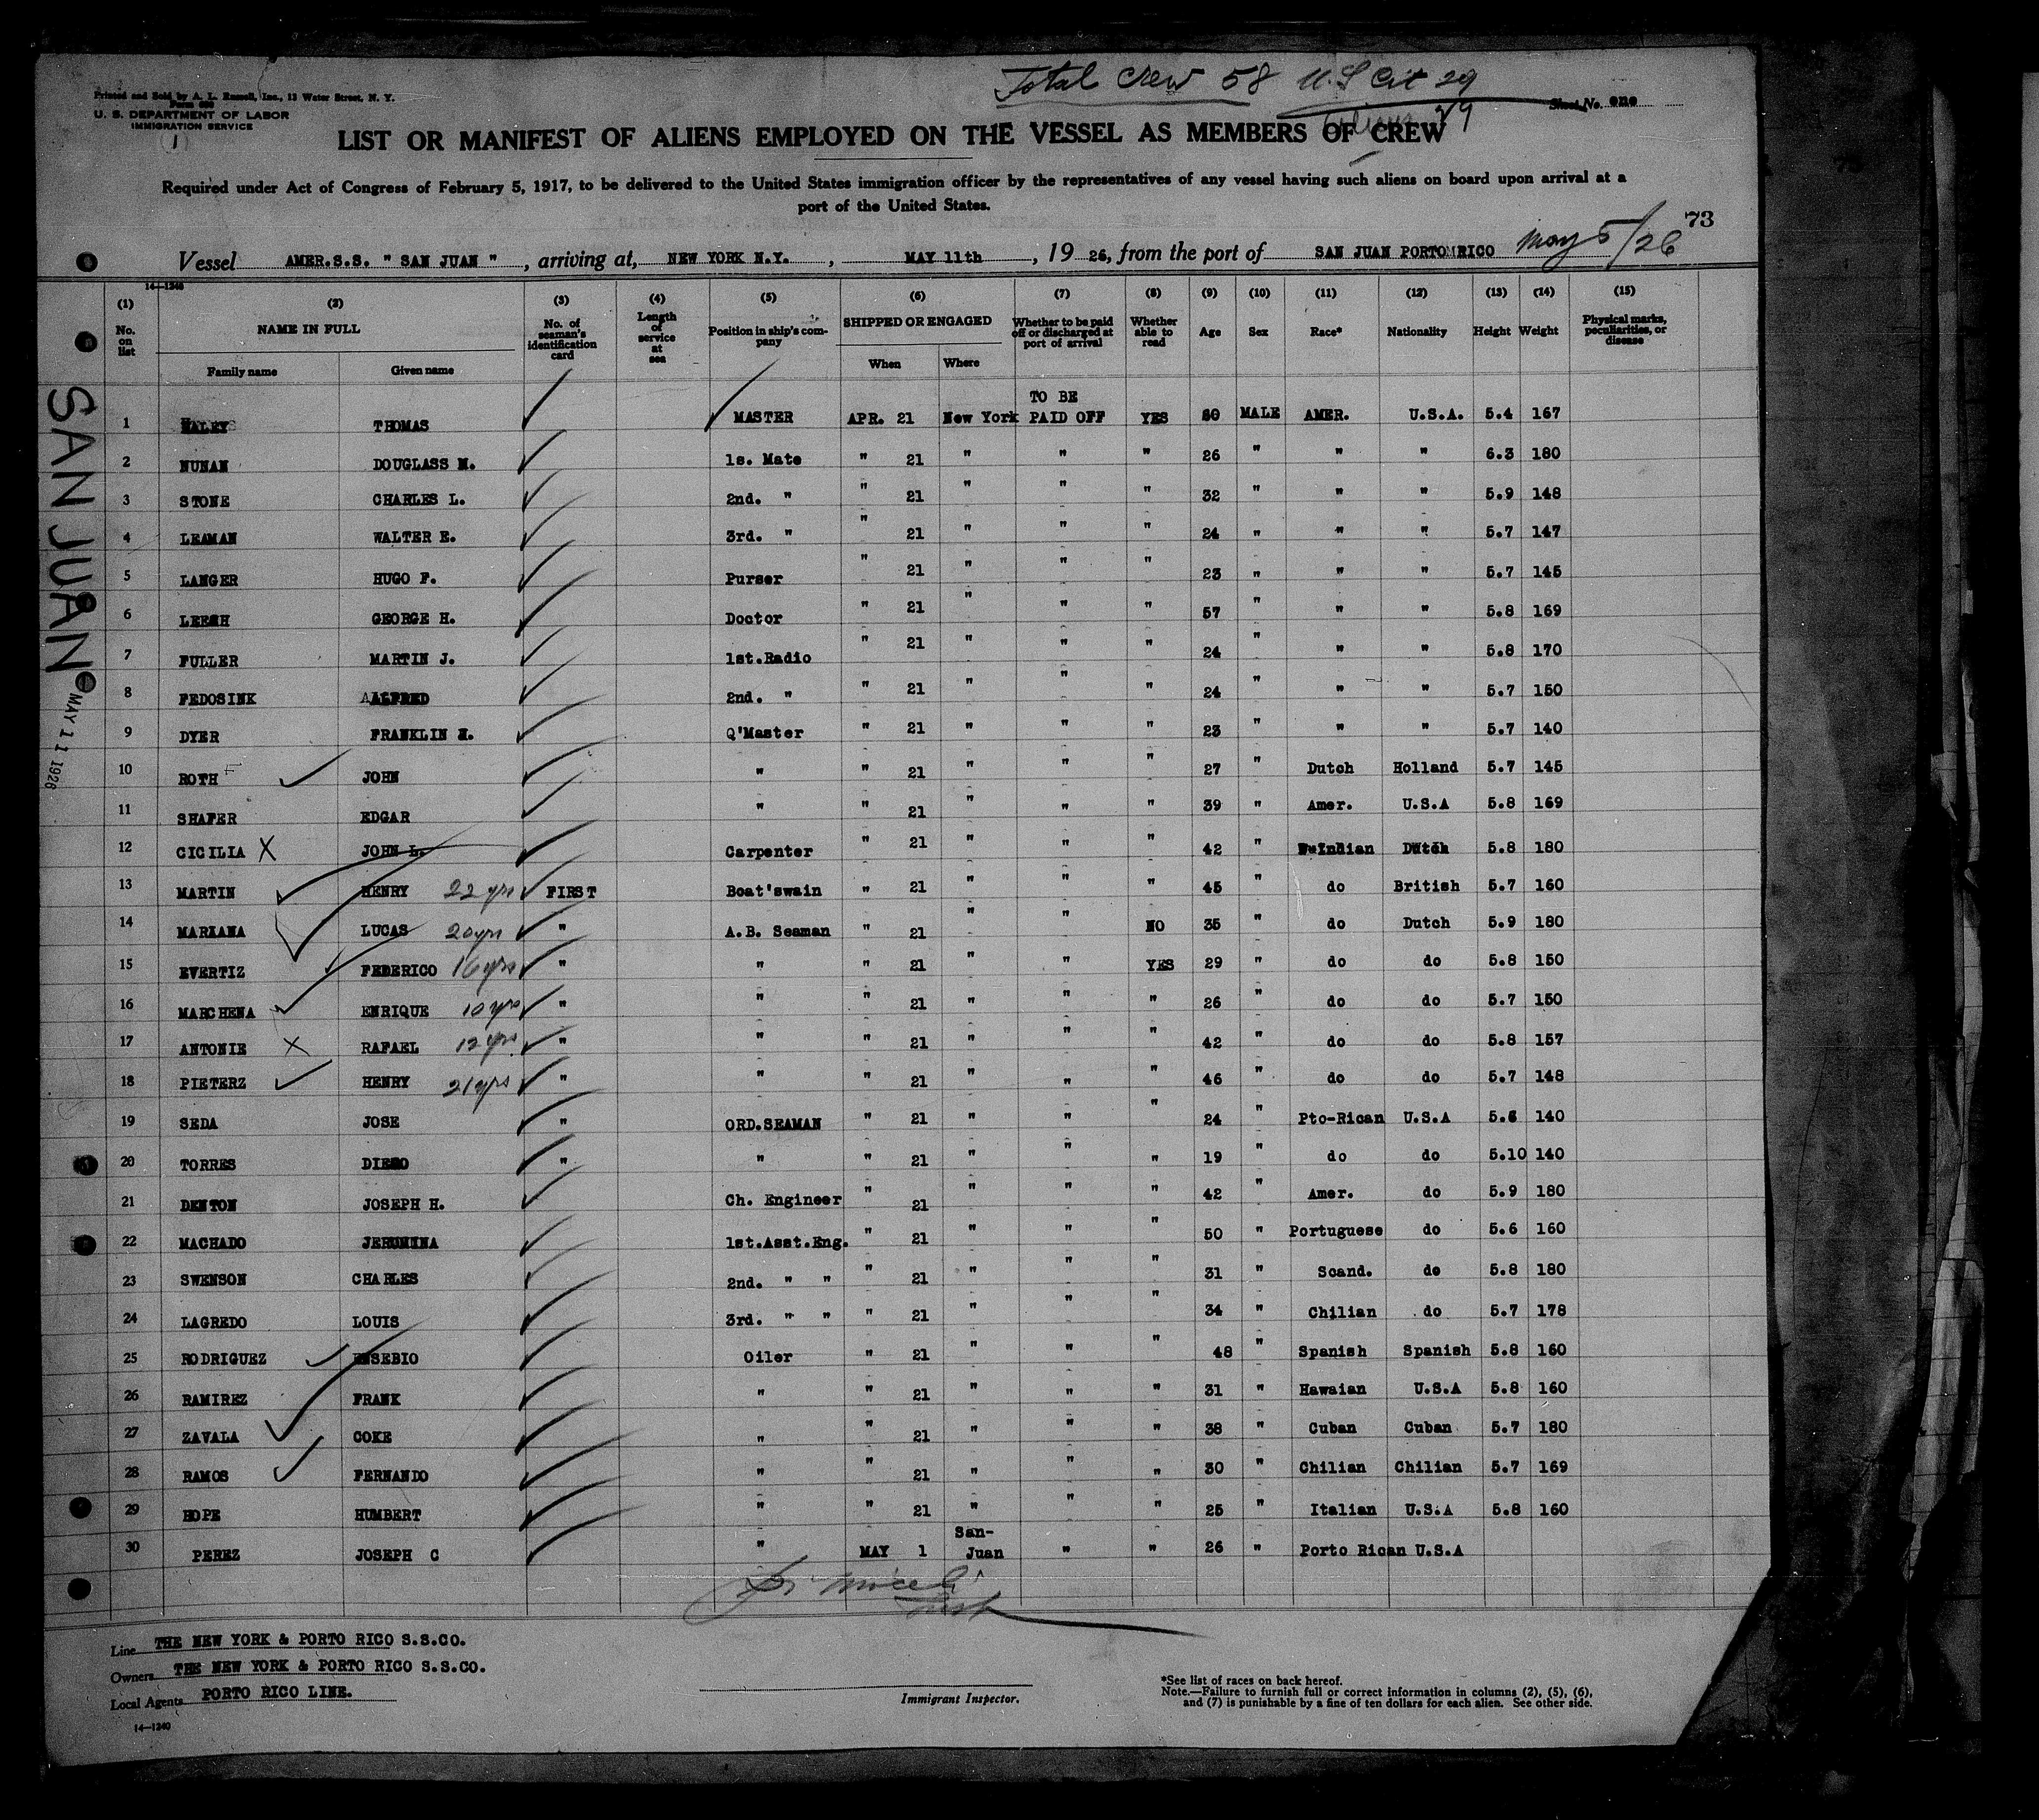 Total Crew 58 U.S Cit 29
Aliens 29
Printed and Sold by A. L. Russell, Inc., 13 Water Street, N. Y.
Form 680
U. S. DEPARTMENT OF LABOR
IMMIGRATION SERVICE
(1)
Sheet No. one
LIST OR MANIFEST OF ALIENS EMPLOYED ON THE VESSEL AS MEMBERS OF CREW
Required under Act of Congress of February 5, 1917, to be delivered to the United States immigration officer by the representatives of any vessel having such aliens on board upon arrival at a
port of the United States.
73
Vessel AMER.S.S. " SAN JUAN ", arriving at, NEW YORK N.Y., MAY 11th, 19 26, from the port of SAN JUAN PORTO RICO May 5/26
14—1240
(1) (2) (3) (4) (5) (6) (7) (8) (9) (10) (11) (12) (13) (14) (15)
No. on list NAME IN FULL Family name Given name No. of seaman's identification card Length of service at sea Position in ship's company SHIPPED OR ENGAGED When Where Whether to be paid off or discharged at port of arrival Whether able to read Age Sex Race* Nationality Height Weight Physical marks, peculiarities, or disease
TO BE
1 HALEY THOMAS MASTER APR. 21 New York PAID OFF YES 60 MALE AMER. U.S.A. 5.4 167
2 NUNAN DOUGLASS M. 1s. Mate " 21 " " " 26 " " " 6.3 180
3 STONE CHARLES L. 2nd. " " 21 " " " 32 " " " 5.9 148
4 LEAMAN WALTER E. 3rd. " " 21 " " " 24 " " " 5.7 147
5 LANGER HUGO F. Purser " 21 " " " 23 " " " 5.7 145
6 GEORGE H. Doctor " 21 " " " 57 " " " 5.8 169
7 FULLER MARTIN J. 1st.Radio " 21 " " " 24 " " " 5.8 170
8 FEDOSINK ALFRED 2nd. " " 21 " " " 24 " " " 5.7 150
9 DYER FRANKLIN H. Q'Master " 21 " " " 23 " " " 5.7 140
10 ROTH JOHN " " 21 " " " 27 " Dutch Holland 5.7 145
11 SHAFER EDGAR " " 21 " " " 39 " Amer. U.S.A 5.8 169
12 CICILIA X JOHN L. Carpenter " 21 " " " 42 " W.Indian Dutch 5.8 180
13 MARTIN HENRY 22 yrs FIRST Boat'swain " 21 " " " 45 " do British 5.7 160
14 MARIANA LUCAS 20yrs " A.B. Seaman " 21 " " NO 35 " do Dutch 5.9 180
15 EVERTIZ FEDERICO 16yrs " " " 21 " " YES 29 " do do 5.8 150
16 MARCHENA ENRIQUE 10yrs " " " 21 " " " 26 " do do 5.7 150
17 ANTONIE X RAFAEL 12yrs " " " 21 " " " 42 " do do 5.8 157
18 PIETERZ HENRY 21yrs " " " 21 " " " 46 " do do 5.7 148
19 SEDA JOSE " ORD.SEAMAN " 21 " " " 24 " Pto-Rican U.S.A 5.6 140
20 TORRES DIEGO " " " 21 " " " 19 " do do 5.10 140
21 DENTON JOSEPH H. Ch. Engineer " 21 " " " 42 " Amer. do 5.9 180
22 MACHADO JERUMINA 1st.Asst.Eng. " 21 " " " 50 " Portuguese do 5.6 160
23 SWENSON CHARLES 2nd. " " " 21 " " " 31 " Scand. do 5.8 180
24 LAGREDO LOUIS 3rd. " " " 21 " " " 34 " Chilian do 5.7 178
25 RODRIGUEZ EUSEBIO Oiler " 21 " " " 48 " Spanish Spanish 5.8 160
26 RAMIREZ FRANK " " 21 " " " 31 " Hawaian U.S.A 5.8 160
27 ZAVALA COKE " " 21 " " " 38 " Cuban Cuban 5.7 180
28 RAMOS FERNANDO " " 21 " " " 30 " Chilian Chilian 5.7 169
29 HOPE HUMBERT " " 21 " " " 25 " Italian U.S.A 5.8 160
30 PEREZ JOSEPH C " MAY 1 San-Juan " " 26 " Porto Rican U.S.A
SAN JUAN
MAY 11 1926
Line THE NEW YORK & PORTO RICO S.S.CO.
Owners THE NEW YORK & PORTO RICO S.S.CO.
Local Agents PORTO RICO LINE.
14—1240
Immigrant Inspector.
*See list of races on back hereof.
Note.—Failure to furnish full or correct information in columns (2), (5), (6),
and (7) is punishable by a fine of ten dollars for each alien. See other side.